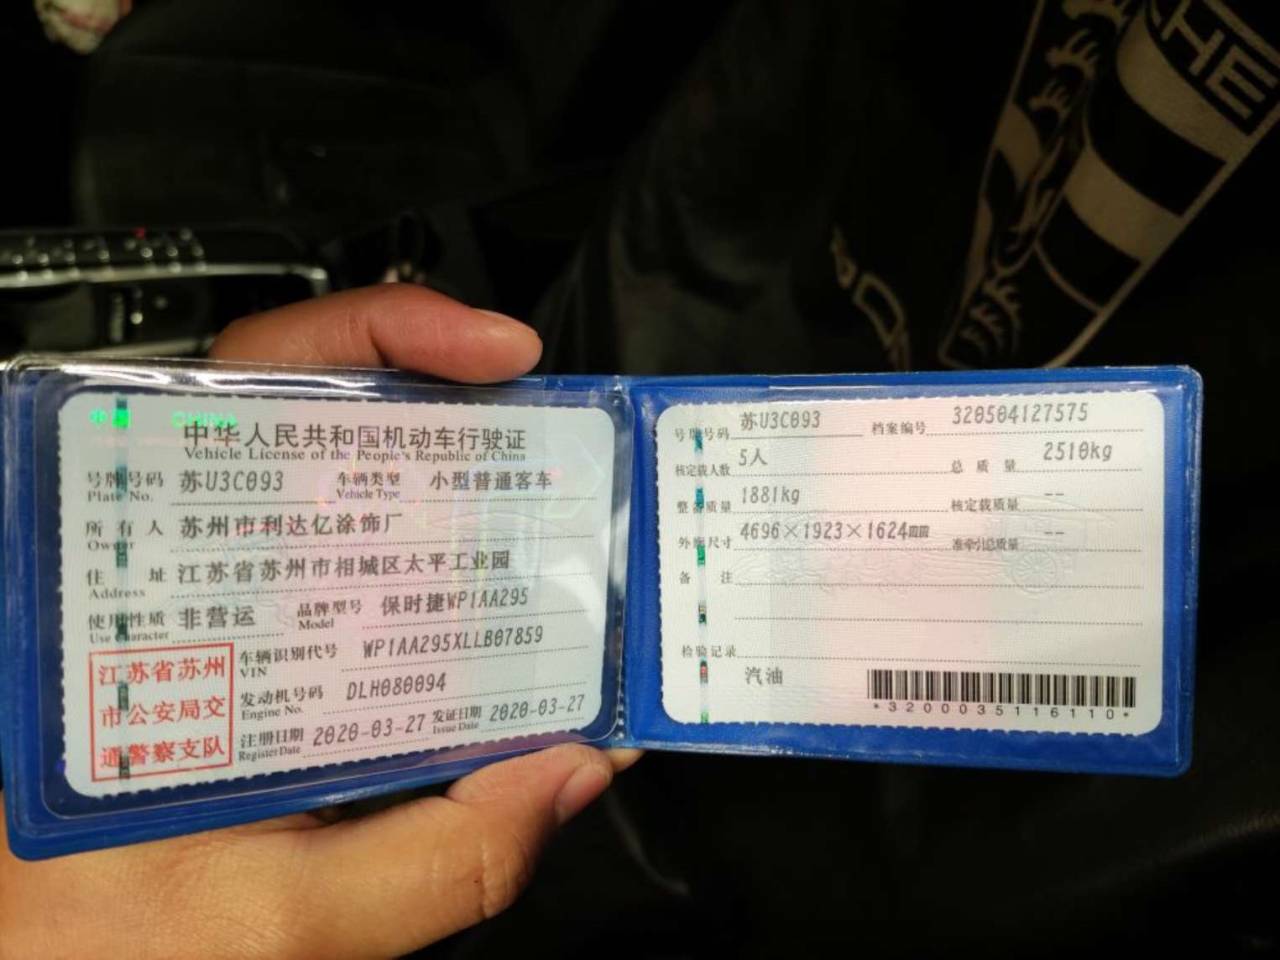 中国 CHINA
中华人民共和国机动车行驶证
Vehicle License of the People's Republic of China
号牌号码 苏U3C093 车辆类型 小型普通客车
Plate No. Vehicle Type
所有人 苏州市利达亿涂饰厂
Owner
住址 江苏省苏州市相城区太平工业园
Address
使用性质 非营运 品牌型号 保时捷WP1AA295
Use Character Model
江苏省苏州
市公安局交
通警察支队
车辆识别代号 WP1AA295XLLB07859
VIN
发动机号码 DLH080094
Engine No.
注册日期 2020-03-27 发证日期 2020-03-27
Register Date Issue Date
号牌号码 苏U3C093 档案编号 320504127575
核定载人数 5人 总质量 2510kg
整备质量 1881kg 核定载质量 --
外廓尺寸 4696×1923×1624mm 准牵引总质量 --
备注
检验记录
汽油
*3200035116110*
CHE